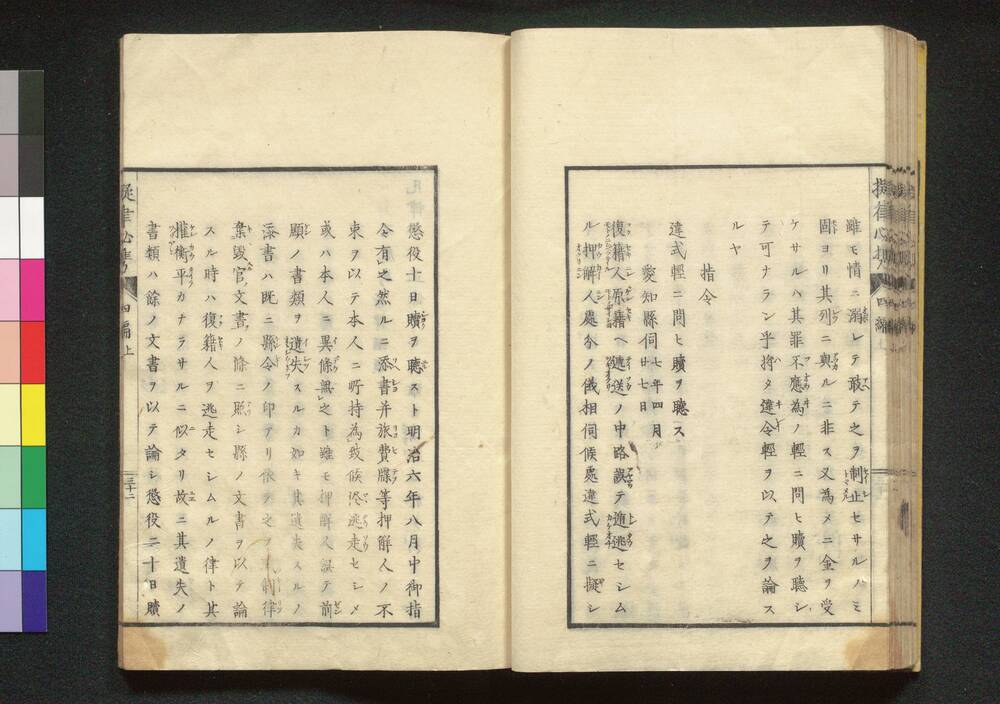 擬律必携
四編上
雖モ情ニ溺レテ敢テ之ヲ制止セサルノミ
固ヨリ其列ニ與ルニ非ス又為メニ金ヲ受
ケサルハ其罪不應為ノ輕ニ問ヒ贖ヲ聽シ
テ可ナラン乎将タ違令輕ヲ以テ之ヲ論ス
ルヤ
指令
違式輕ニ問ヒ贖ヲ聽ス
愛知縣伺 七年四月廿七日
復籍人原籍ヘ遞送ノ中路誤テ逃逃セシム
ル押解人處分ノ儀相伺候處違式輕ニ擬シ
懲役十日贖ヲ聽スト明治六年八月中御指
令有之然ルニ添書并旅費牒等押解人ノ不
束ヲ以テ本人ニ所持為致候終逃走セシメ
或ハ本人ニ異條無之ト雖モ押解人誤テ前
顯ノ書類ヲ遺失スルカ如キ其遺失スルノ
添書ハ既ニ縣令ノ印アリ依テ之ヲ制律
棄毀官文書ノ條ニ照シ縣ノ文書ヲ以テ論
スル時ハ復籍人ヲ逃走セシムルノ律ト其
權衡平カナラサルニ似タリ故ニ其遺失ノ
書類ハ餘ノ文書ヲ以テ論シ懲役二十日贖
擬律必携
四編上
三十二